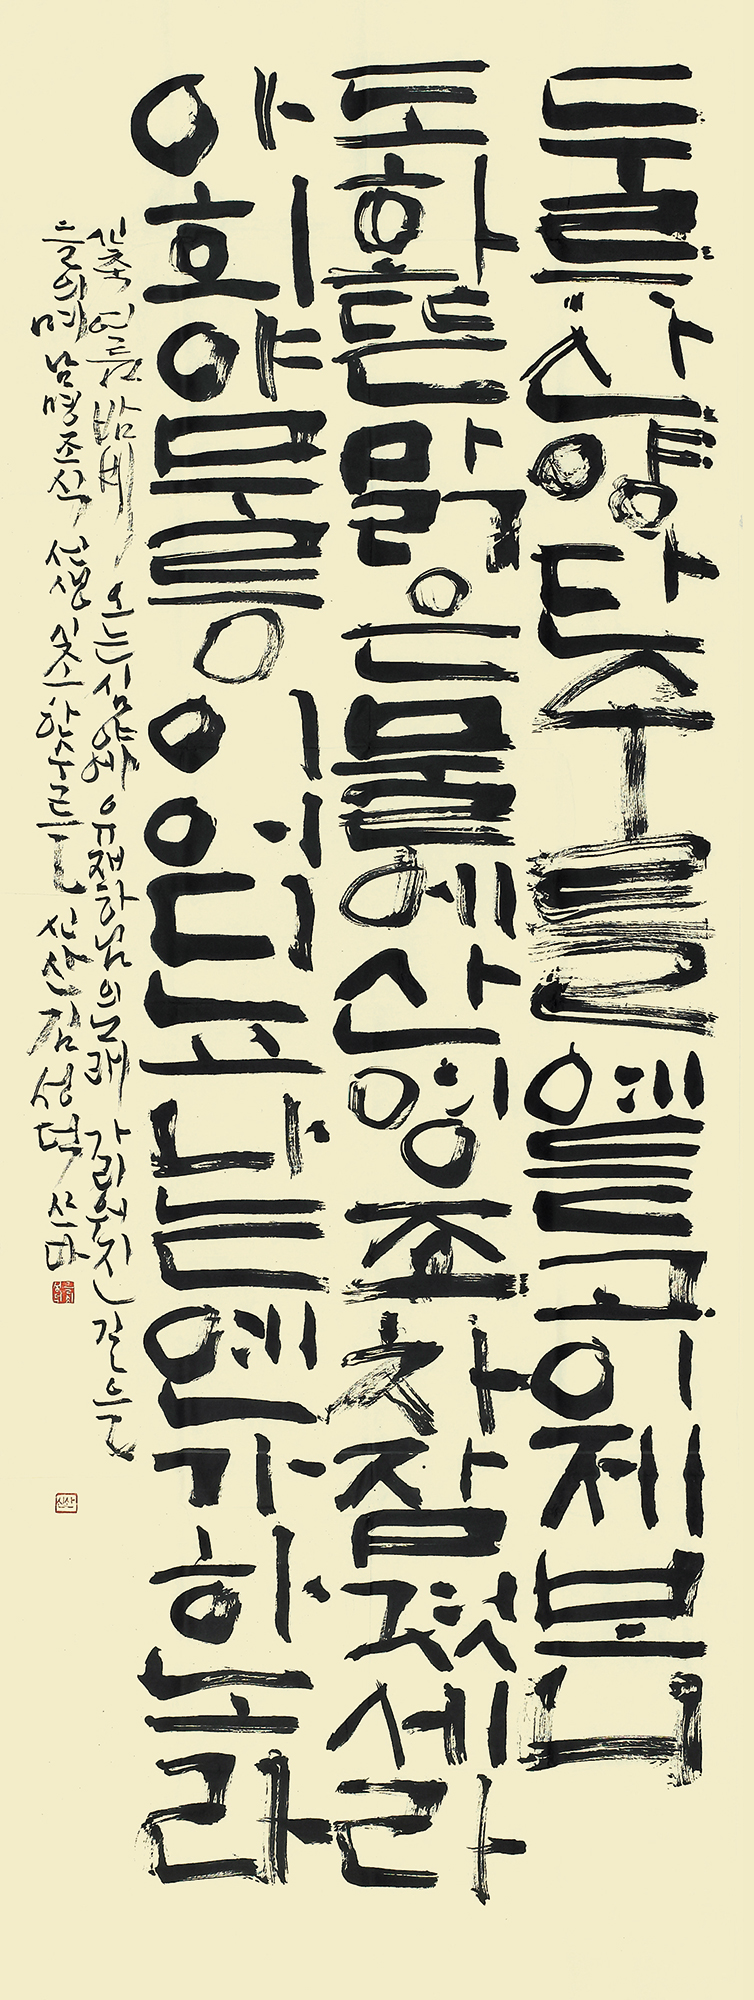 두류산양단수를예듣고이제보니
도화뜬맑은물에산영조차잠겻세라
아희야무릉이어디뇨나는옌가하노라
신축 여름 밤비 오는 심야에 유재하님의 노래 가리워진 길을
들으며 남명조식 선생 시조 한수를 신산 김성덕 쓰다
신산